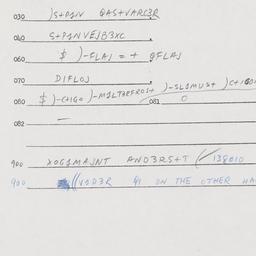 030 )S+P1N QAS+VARC3R
040 S+P1NVEJB3XC
060 $ )-FLAJ = + QFLAJ
070 DIFLOJ
080 $ )-CHGO )-M1LTHEFROS+ )-SL1MUS+
081 0
082 —
900 XOG1MAJNT AND3RS+T 138010
900 V1D3R 41 ON THE OTHER HA